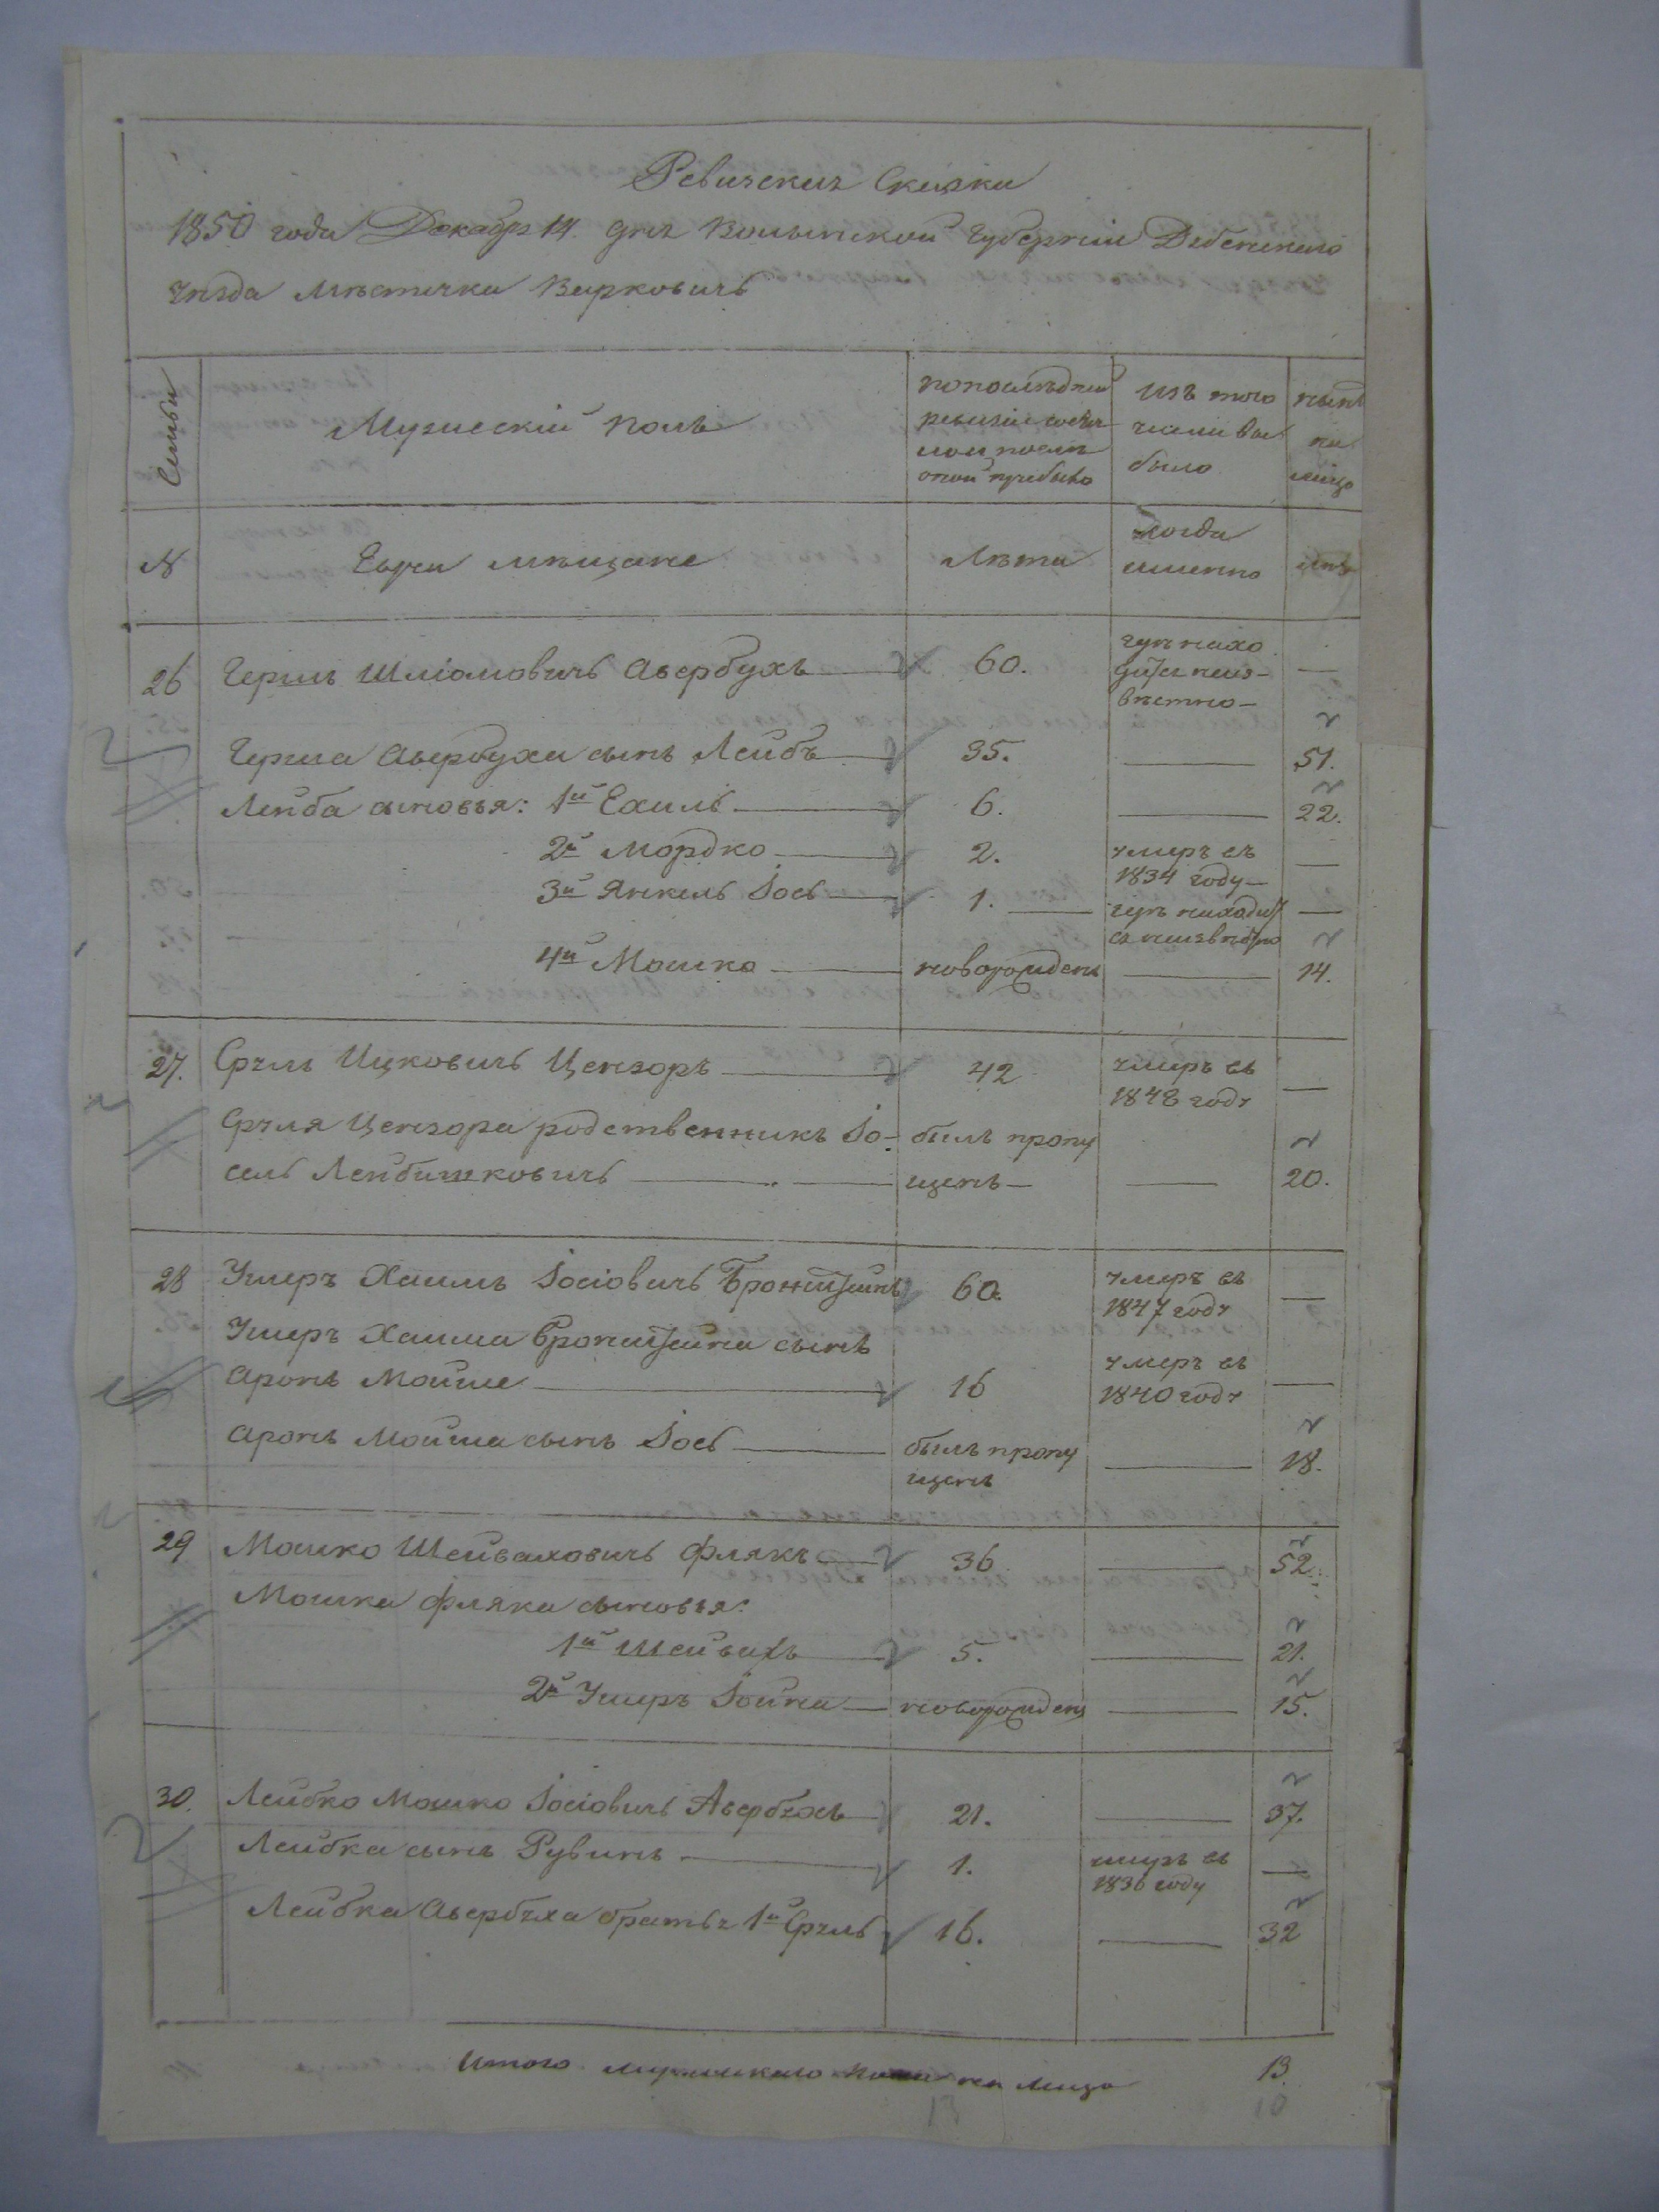 Ревизская Сказка
1850 года Декабря 14. дня Волынской Губерніи Дубенскаго
уѣзда мѣстечка Верковичъ
Семьи
Мужескій полъ
по послѣдней
ревизіи состоя
ло и послѣ
оной прибыло
изъ того
числа вы
было
нынѣ
на
лицо
№
Евреи мѣщане
Лѣта
когда
именно
лѣта
26 Гершъ Шліомовичъ Авербухъ 60. гдѣ нахо
дится неиз-
вѣстно —
Герша Авербуха сынъ Лейбъ 35. — 51.
Лейба сыновья: 1й Ехиль 6. — 22.
2й Мордко 2. умеръ въ
1834 году —
3й Янкель Іось 1. гдѣ находит
ся неизвѣстно
4й Мошко новорожденъ — 14.
27. Сруль Ицковичъ Цензоръ 42 умеръ въ
1848 году —
Сруля Цензора родственникъ Іо- былъ пропу
сель Лейбишковичъ — щенъ — — 20.
28 Умеръ Хаимъ Іосіовичъ Бронштейнъ 60. умеръ въ
1847 году —
Умеръ Хаима Бронштейна сынъ
Аронъ Мойше 16 умеръ въ
1840 году —
Аронъ Мойша сынъ Іось былъ пропу
щенъ — 18.
29 Мошко Шейваховичъ Флякъ 36 — 52.
Мошка Фляка сыновья:
1й Шейвахъ 5. — 21.
2й Умеръ Іойна новорожденъ — 15.
30. Лейбко Мошко Іосіовичъ Авербухъ 21. — 37.
Лейбка сынъ Рувинъ 1. умеръ въ
1836 году —
Лейбка Авербуха братья 1й Сруль 16. — 32
Итого мужескаго пола на лицо 13.
13 10